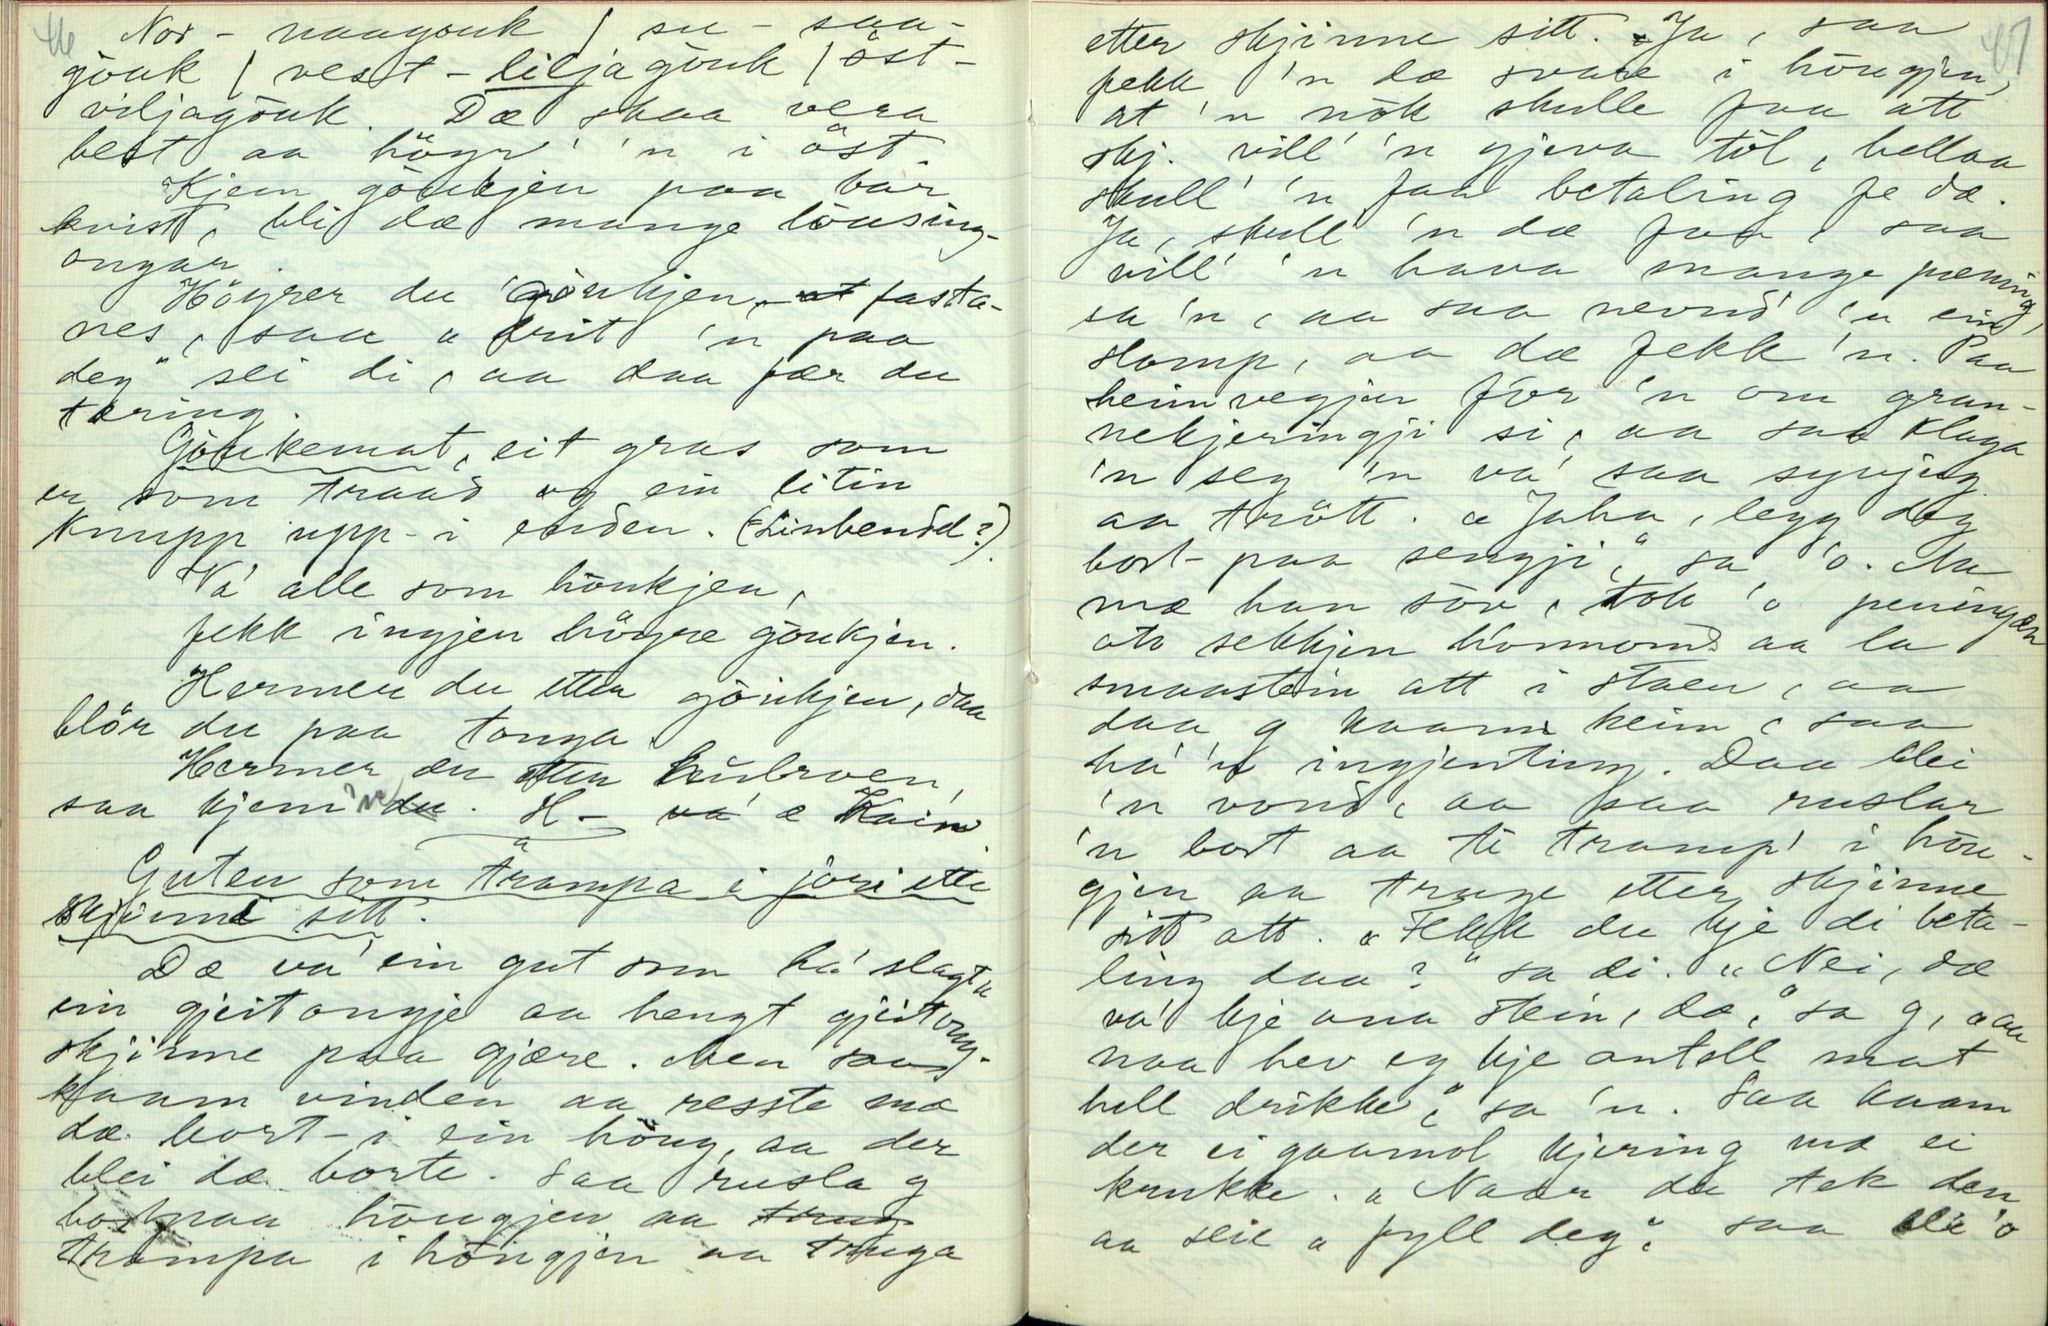 46
Nor - naagouk / su - saa-
gouk / vest - liljagouk / öst-
viljagouk. Dæ skaa vera
best aa höyr' 'n i öst.
Kjem goukjen paa bar
kvist, bli dæ mange lousing-
ongar.
Höyrer du goukjen, at fasta-
nes, saa "drit 'n paa
deg" sei di, aa daa fær du
tæring.
Goukemat, eit gras som
er som traad og ein liten
knupp upp-i enden. (Linbendel?)
Va' alle som houkjen,
fekk ingjen höyre goukjen.
Hermer du etter goukjen, daa
blör du paa tonga.
Hermer du etter hubroen,
saa kjem 'n du. H- va' e Kain.
Guten som trampa i jori ette
skjinne sitt.
Dæ va' ein gut som ha' slagta
ein gjeitongje aa hengt gjeitong-
skjinne paa gjære. Men saa
kaam vinden aa resste mæ
dæ bort-i ein houg, aa der
blei dæ borte. Saa rusla g
bortpaa hougjen aa trug
trampa i hougjen aa truga
47
etter skjinne sitt. Ja, saa
fekk 'n dæ svare i hougjen,
at 'n nok skulle faa att
skj. vill' 'n gjeva tol, hellaa
skull' 'n faa betaling fe dæ.
Ja, skull' 'n dæ faa, saa
vill' 'n hava mange pæning,
sa 'n, aa saa nevnd' 'n ein
slomp, aa dæ fekk 'n. Paa
heimvegjen for 'n om gran-
nekjeringji si, aa saa klaga
'n seg 'n va' saa syvjug
aa trött. "Jaha, legg deg
bort-paa sengji," sa 'o. Aa
mæ han sov, tok 'o peningan
or sekkjen honnoms aa la
smaastein att i staen, aa
daa g kaam heim, saa
ha' 'n ingjenting. Daa blei
'n vond, aa saa ruslar
'n bort aa te tramp' i hou-
gjen aa truge etter skjinne
sitt att. "Fekk du kje di beta-
ling daa?" sa di. "Nei, dæ
va' kje ana stein, dæ," sa g, "aa
naa hev eg kje antell mat
hell drikke," sa 'n. Saa kaam
der ei gaamol kjering mæ ei
krukke. "Naar du tek den
aa seie "fyll deg", saa bli 'o